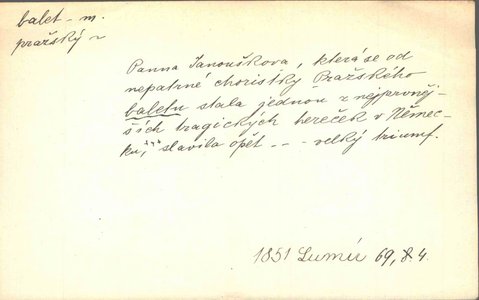 balet – m.
pražský ~
Panna Janoušková, která se od
nepatrné choristky Pražského
baletu stala jednou z nejprvněj-
ších tragických hereček v Němec-
ku, slavila opět --- velký triumf.
1851 Lumír 69, 8. 4.